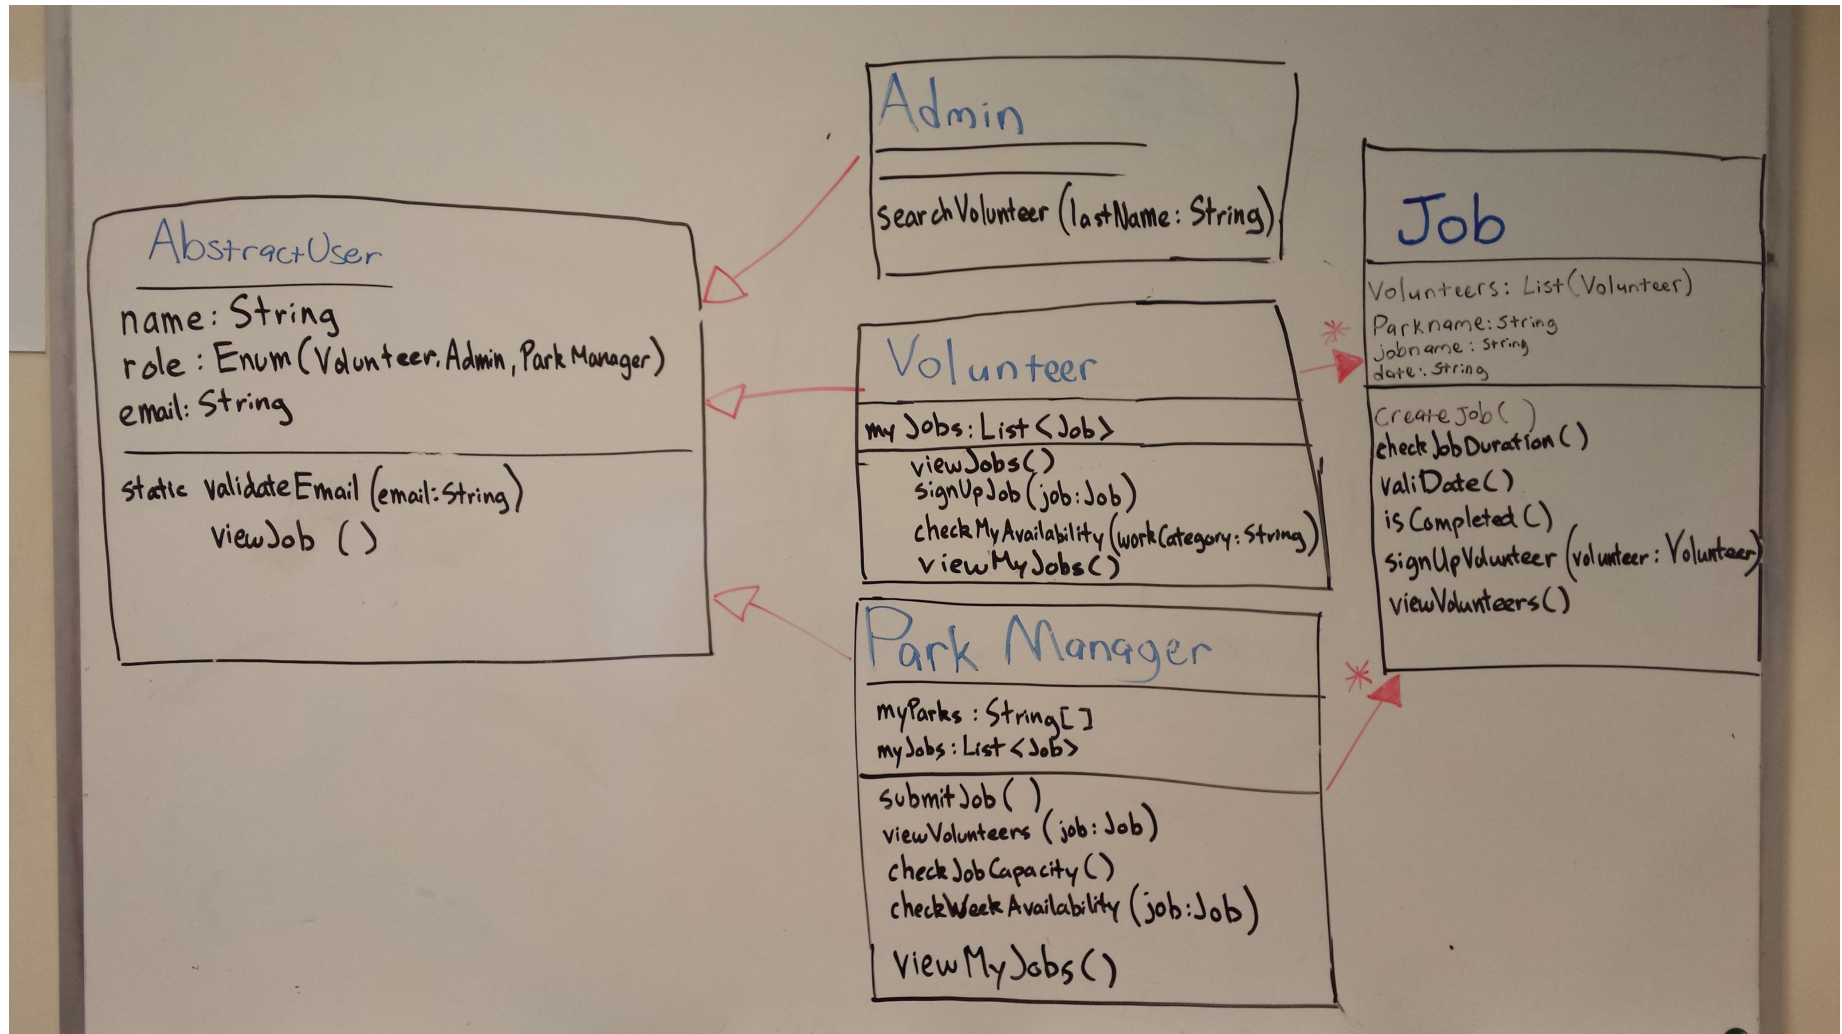 AbstractUser
name: String
role: Enum(Volunteer, Admin, Park Manager)
email: String
static validateEmail (email: String)
viewJob ( )
Admin
searchVolunteer (lastName: String)
Volunteer
my Jobs: List <Job>
viewJobs()
signUpJob (job: Job)
checkMyAvailability (workCategory: String)
viewMyJobs()
Park Manager
myParks : String[ ]
myJobs: List <Job>
submitJob ( )
viewVolunteers (job: Job)
checkJobCapacity ( )
checkWeekAvailability (job: Job)
viewMyJobs()
*
*
Job
Volunteers: List(Volunteer)
Parkname: String
jobname: String
date: String
CreateJob( )
checkJobDuration ( )
valiDate ( )
isCompleted ( )
signUpVolunteer (volunteer: Volunteer)
viewVolunteers ( )